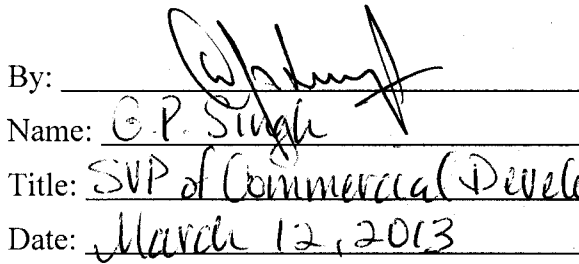 By:
Name: G.P. Singh
Title: SVP of Commercial Develo
Date: March 12, 2013